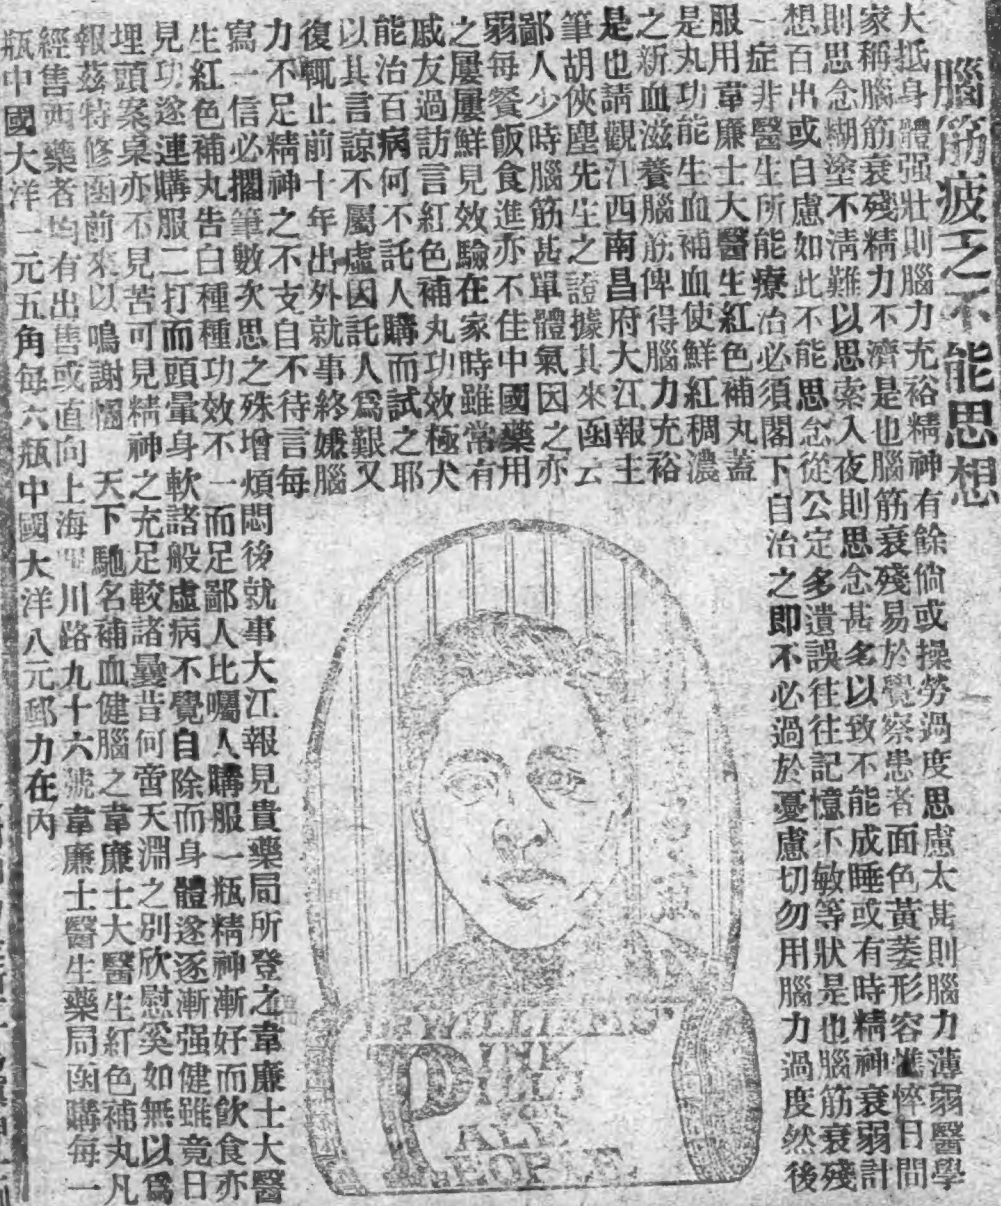 腦筋疲乏不能思想
大抵身體强壯則腦力充裕精神有餘倘或操勞過度思慮太甚則腦力薄弱醫學
家稱腦筋衰殘精力不濟是也腦筋衰殘易於覺察患者面色黃萎形容憔悴日間
則思念糊塗不淸難以思索入夜則思念甚多以致不能成睡或有時精神衰弱計
想百出或白慮如此不能思念從公定多遺誤往往記憶不敏等狀是也腦筋衰殘
一症非醫生所能療治必須閣下自治之即不必過於憂慮切勿用腦力過度然後
服用韋廉士大醫生紅色補丸蓋
是丸功能生血補血使鮮紅稠濃
之新血滋養腦筋俾得腦力充裕
是也請觀江西南昌府大江報主
筆胡俠塵先生之證據其來函云
鄙人少時腦筋甚單體氣因之亦
弱每餐飯食進亦不佳中國藥用
之屢屢鮮見效驗在家時雖常有
戚友過訪言紅色補丸功效極大
能治百病何不託人購而試之耶
以其言諒不屬虛因託人爲艱又
復輒止前十年出外就事終嫌腦
力不足精神之不支自不待言每
寫一信必擱筆數次思之殊增煩悶後就事大江報見貴藥局所登之韋廉士大醫
生紅色補丸告白種種功效不一而足鄙人比囑人購服一瓶精神漸好而飲食亦
見功遂連購服二打而頭暈身軟諸般虛病不覺自除而身體遂逐漸强健雖竟日
埋頭案桌亦不見苦可見精神之充足較諸曩昔何啻天淵之別欣慰奚如無以爲
報茲特修函前來以鳴謝悃 天下馳名補血健腦之韋廉士大醫生紅色補丸凡
經售西藥者均有出售或直向上海四川路九十六號韋廉士醫生藥局函購每一
瓶中國大洋一元五角每六瓶中國大洋八元郵力在內
DR WILLIAMS'
PINK
PILLS
PALE
PEOPLE